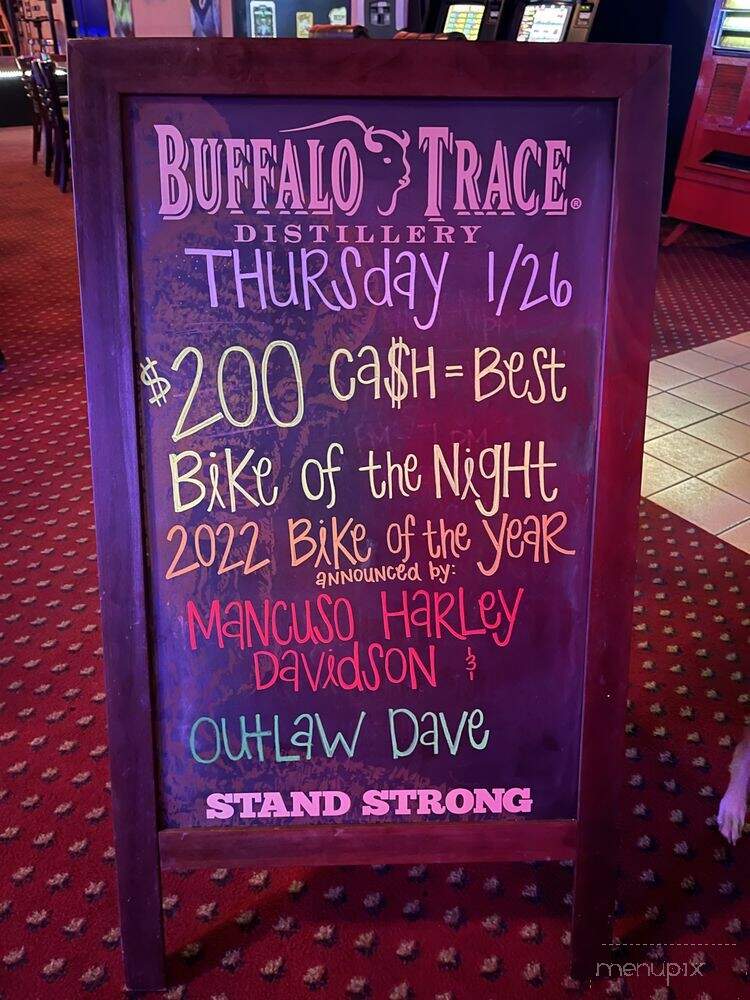 BUFFALO TRACE®
DISTILLERY
THURSday 1/26
$200 Ca$H = BeSt
BiKe of the NigHt
2022 BiKe of the yeaR
aNNOUNCed by:
MaNCUSO HaRLey
DavidSON &
OUtLaW Dave
STAND STRONG
menupix